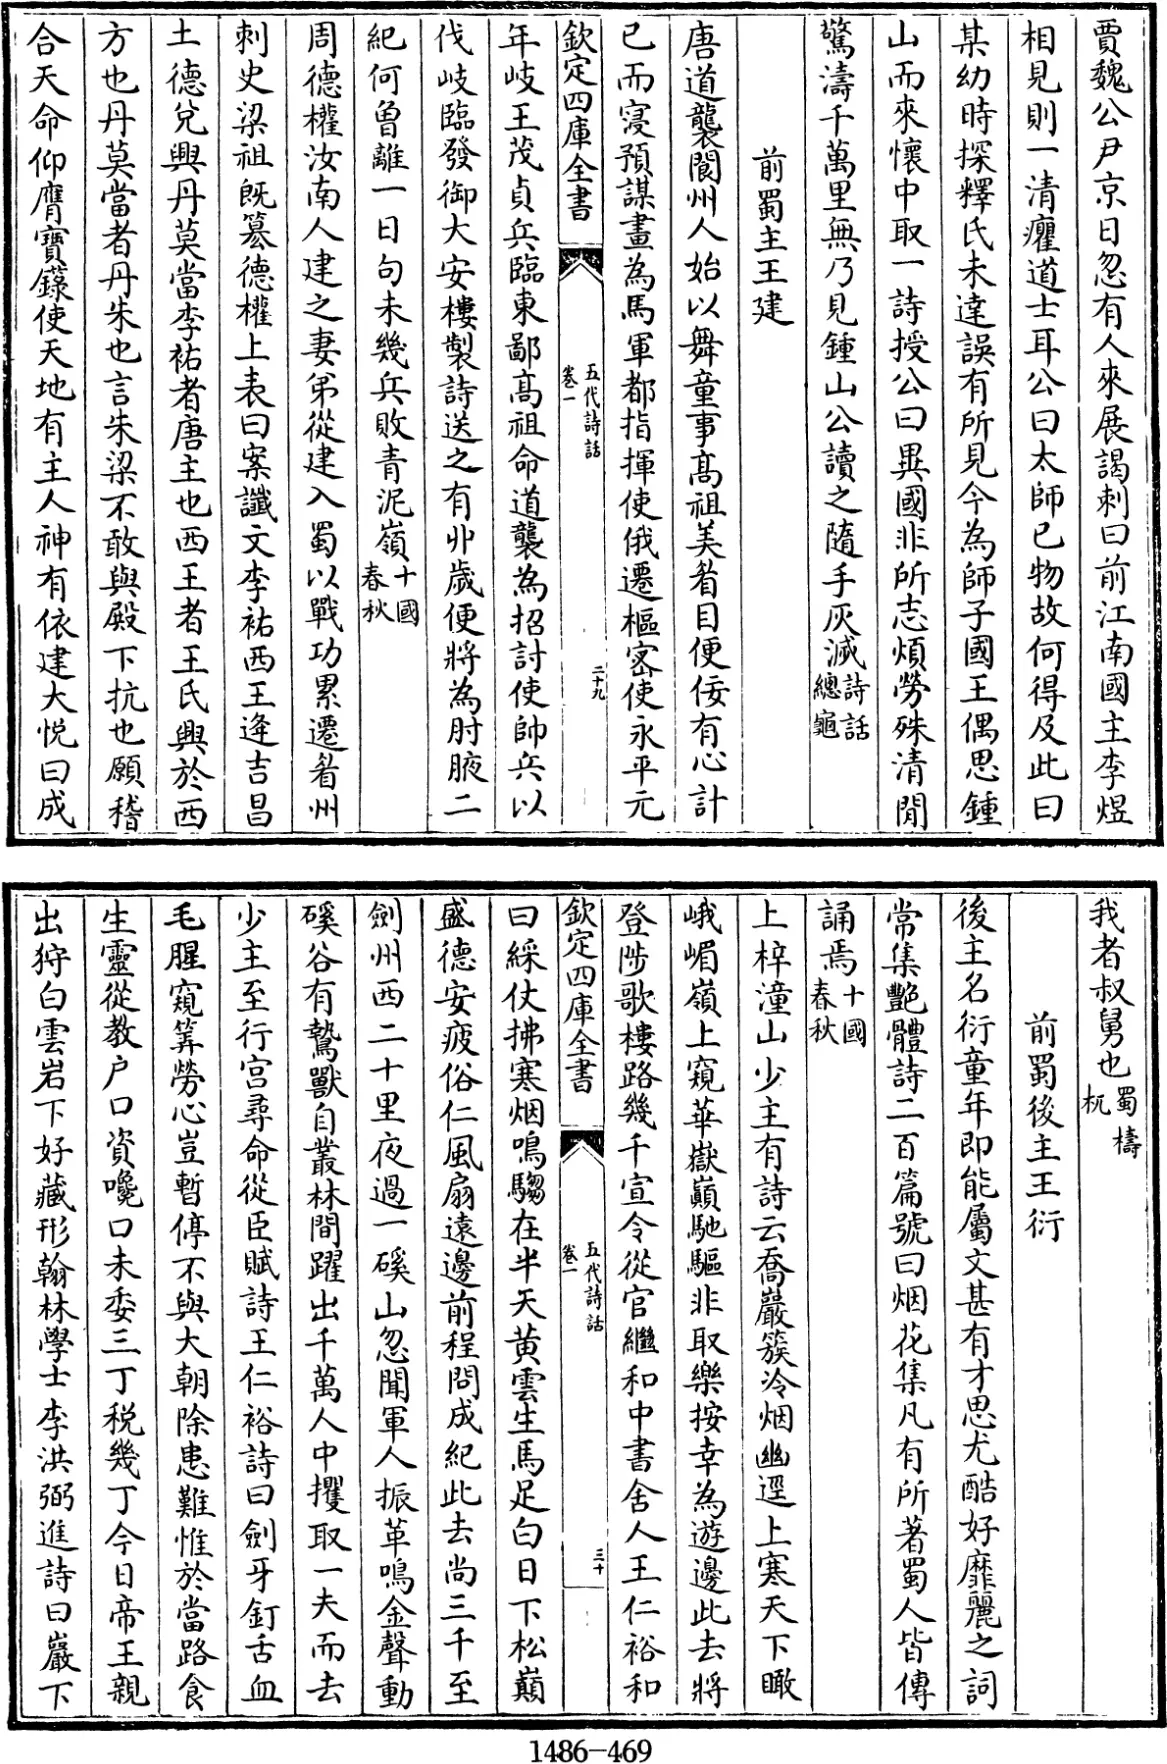 賈魏公尹京日忽有人來展謁刺曰前江南國主李煜
相見則一清癯道士耳公曰太師已物故何得及此曰
某幼時探釋氏未達誤有所見今為師子國王偶思鍾
山而來懷中取一詩授公曰異國非所志煩勞殊清閒
驚濤千萬里無乃見鍾山公讀之隨手灰滅詩話總龜
前蜀主王建
唐道襲閬州人始以舞童事高祖美眉目便佞有心計
已而寖預謀畫為馬軍都指揮使俄遷樞密使永平元
欽定四庫全書
五代詩話
卷一
二十九
年岐王茂貞兵臨東鄙高祖命道襲為招討使帥兵以
伐岐臨發御大安樓製詩送之有丱歲便將為肘腋二
紀何曾離一日句未幾兵敗青泥嶺十國春秋
周德權汝南人建之妻弟從建入蜀以戰功累遷眉州
刺史梁祖既簒德權上表曰案讖文李祐西王逄吉昌
土德兌興丹莫當李祐者唐主也西王者王氏興於西
方也丹莫當者丹朱也言朱梁不敢與殿下抗也願稽
合天命仰膺寶籙使天地有主人神有依建大悅曰成
我者叔舅也蜀檮杌
前蜀後主王衍
後主名衍童年即能屬文甚有才思尤酷好靡麗之詞
常集艷體詩二百篇號曰烟花集凡有所著蜀人皆傳
誦焉十國春秋
上梓潼山少主有詩云喬巖簇冷烟幽逕上寒天下瞰
峨嵋嶺上窺華嶽巔馳驅非取樂按幸為遊邊此去將
登陟歌樓路幾千宣令從官繼和中書舍人王仁裕和
欽定四庫全書
五代詩話
卷一
三十
曰綵仗拂寒烟鳴騶在半天黃雲生馬足白日下松巔
盛德安疲俗仁風扇遠邊前程問成紀此去尚三千至
劍州西二十里夜過一磎山忽聞軍人振革鳴金聲動
磎谷有鷙獸自叢林間躍出千萬人中攫取一夫而去
少主至行宮尋命從臣賦詩王仁裕詩曰劍牙釘舌血
毛腥窺筭勞心豈暫停不與大朝除患難惟於當路食
生靈從教戶口資嚵口未委三丁稅幾丁今日帝王親
出狩白雲岩下好藏形翰林學士李洪弼進詩曰巖下
1486-469